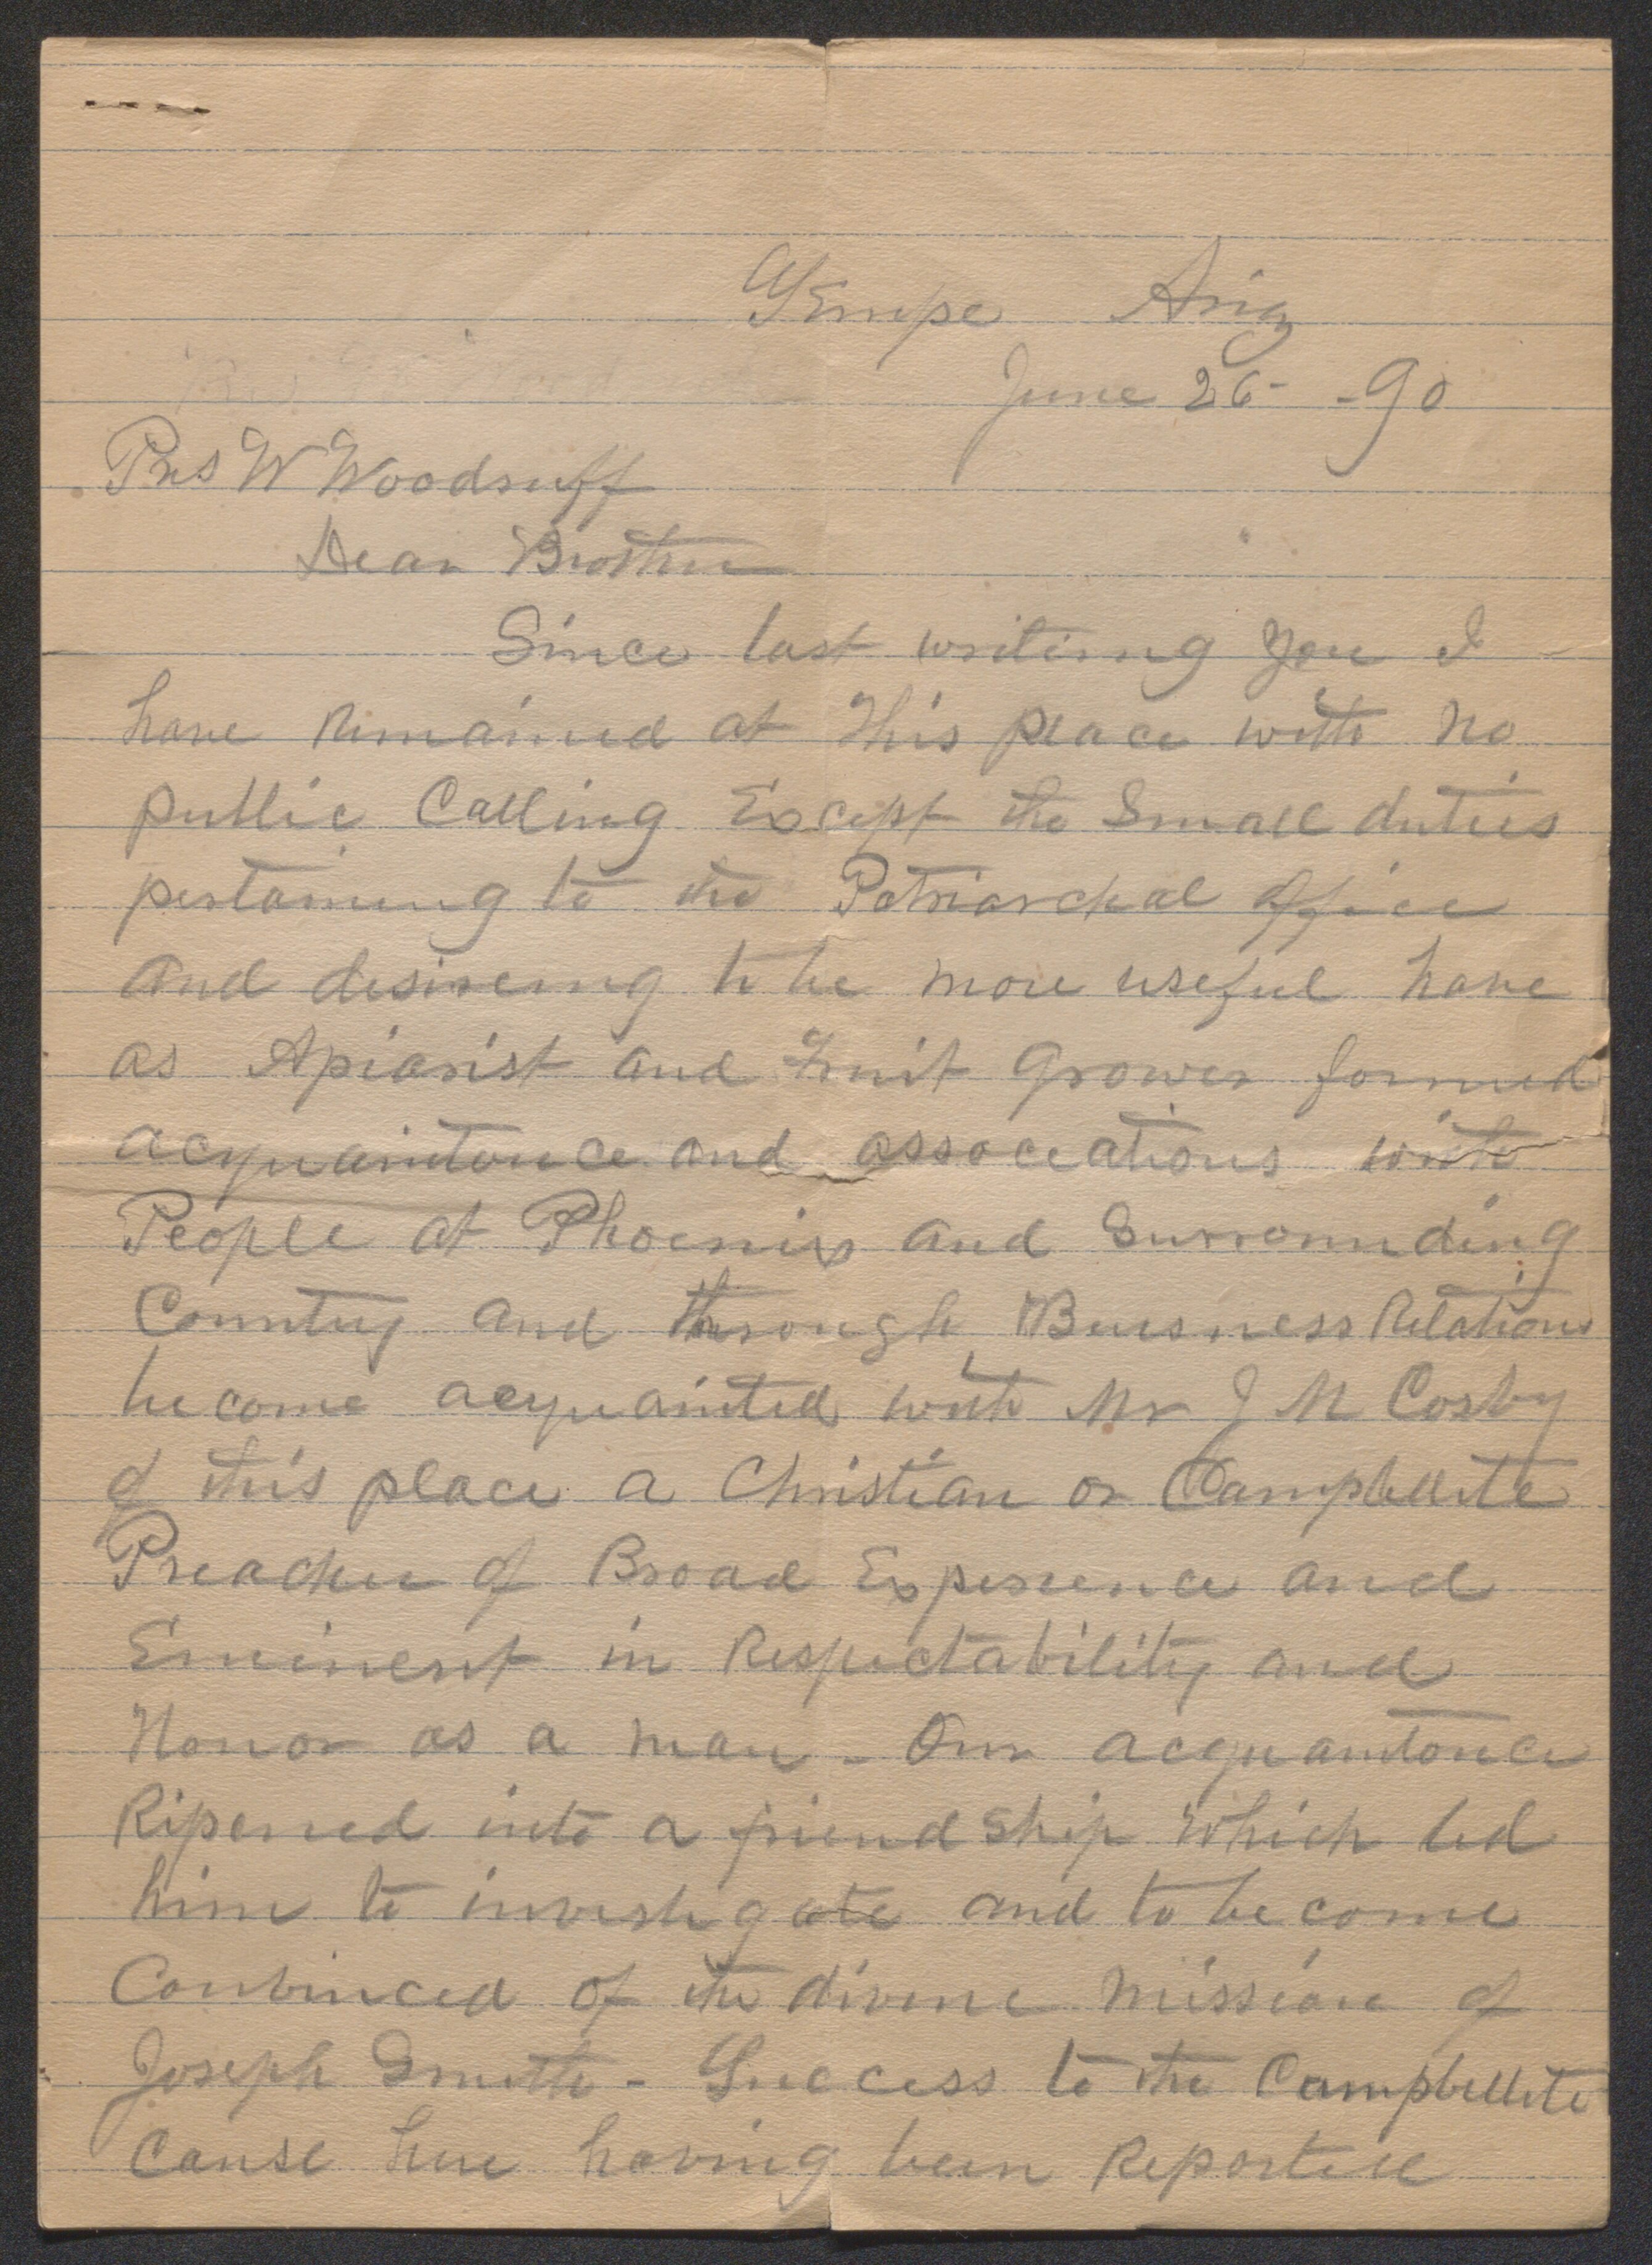 Tempe Ariz
June 26 - - 90
Pres W Woodruff
Dear Brother
Since last writing you I
have remained at this place with no
public Calling Except the Small duties
pertaining to the Patriarchal office
and desireing to be more useful have
as Apiarist and Fruit Grower formed
acquaintance and associations with
People at Phoenix and Surrounding
Country and through Buisness Relations
become acquainted with Mr J M Cosby
of this place a Christian or Campbellite
Preacher of Broad Experience and
Eminent in Respectability and
Honor as a man - Our acquaintance
Ripened into a friend ship which led
him to investigate and to become
Convinced of the divine mission of
Joseph Smith - Success to the Campbellite
Cause here having been Reported